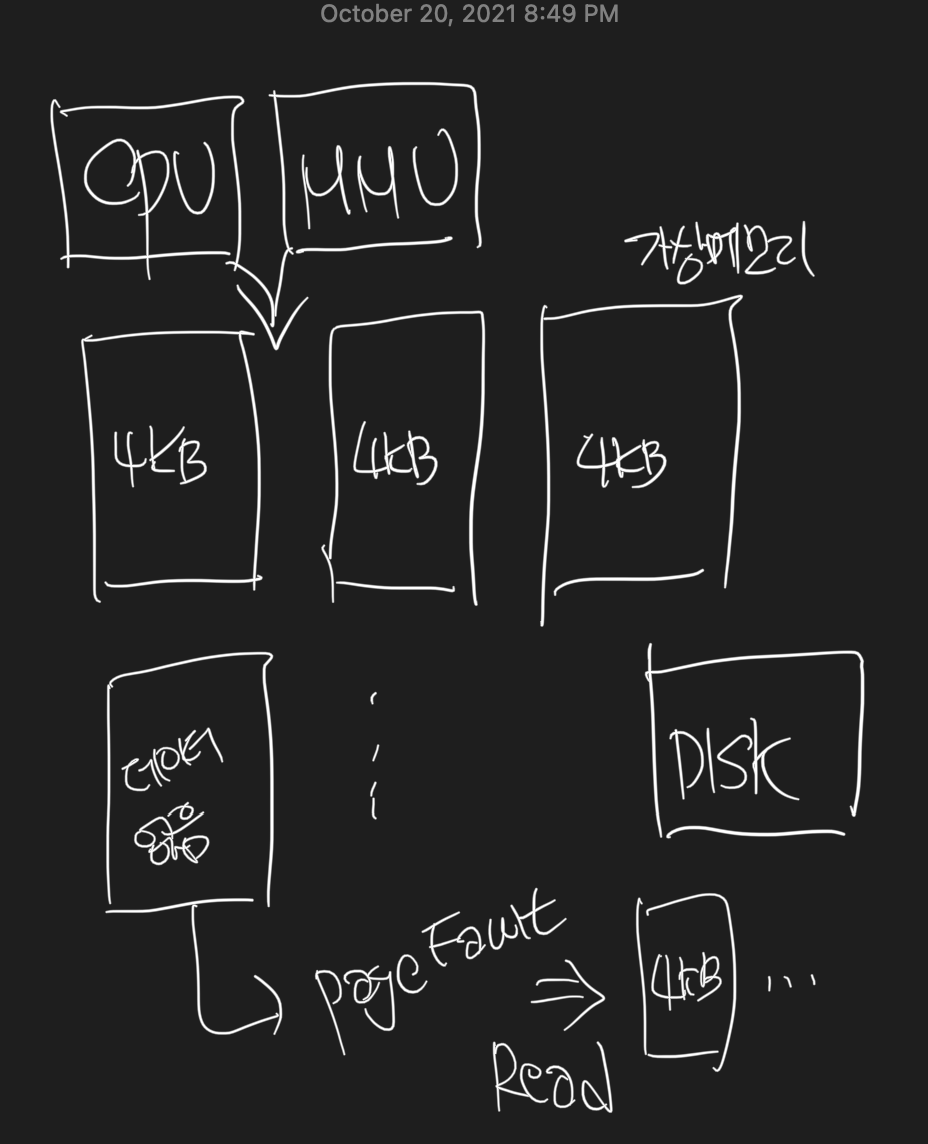 October 20, 2021 8:49 PM
CPU
MMU
가상메모리
4KB
4KB
4KB
데이터
없음
DISK
page Fault
4KB ...
Read